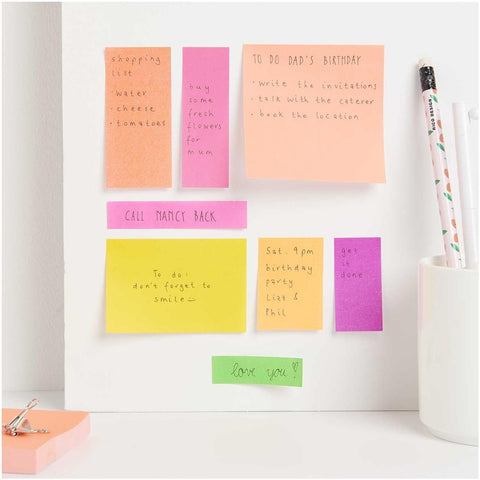 shopping
list
· water
· cheese
· tomatoes
buy
some
fresh
flowers
for
mum
TO DO DAD'S BIRTHDAY
· write the invitations
· talk with the caterer
· book the location
CALL NANCY BACK
To do:
don't forget to
smile
Sat. 9pm
birthday
party
Lizt &
Phil
get
it
done
love you!